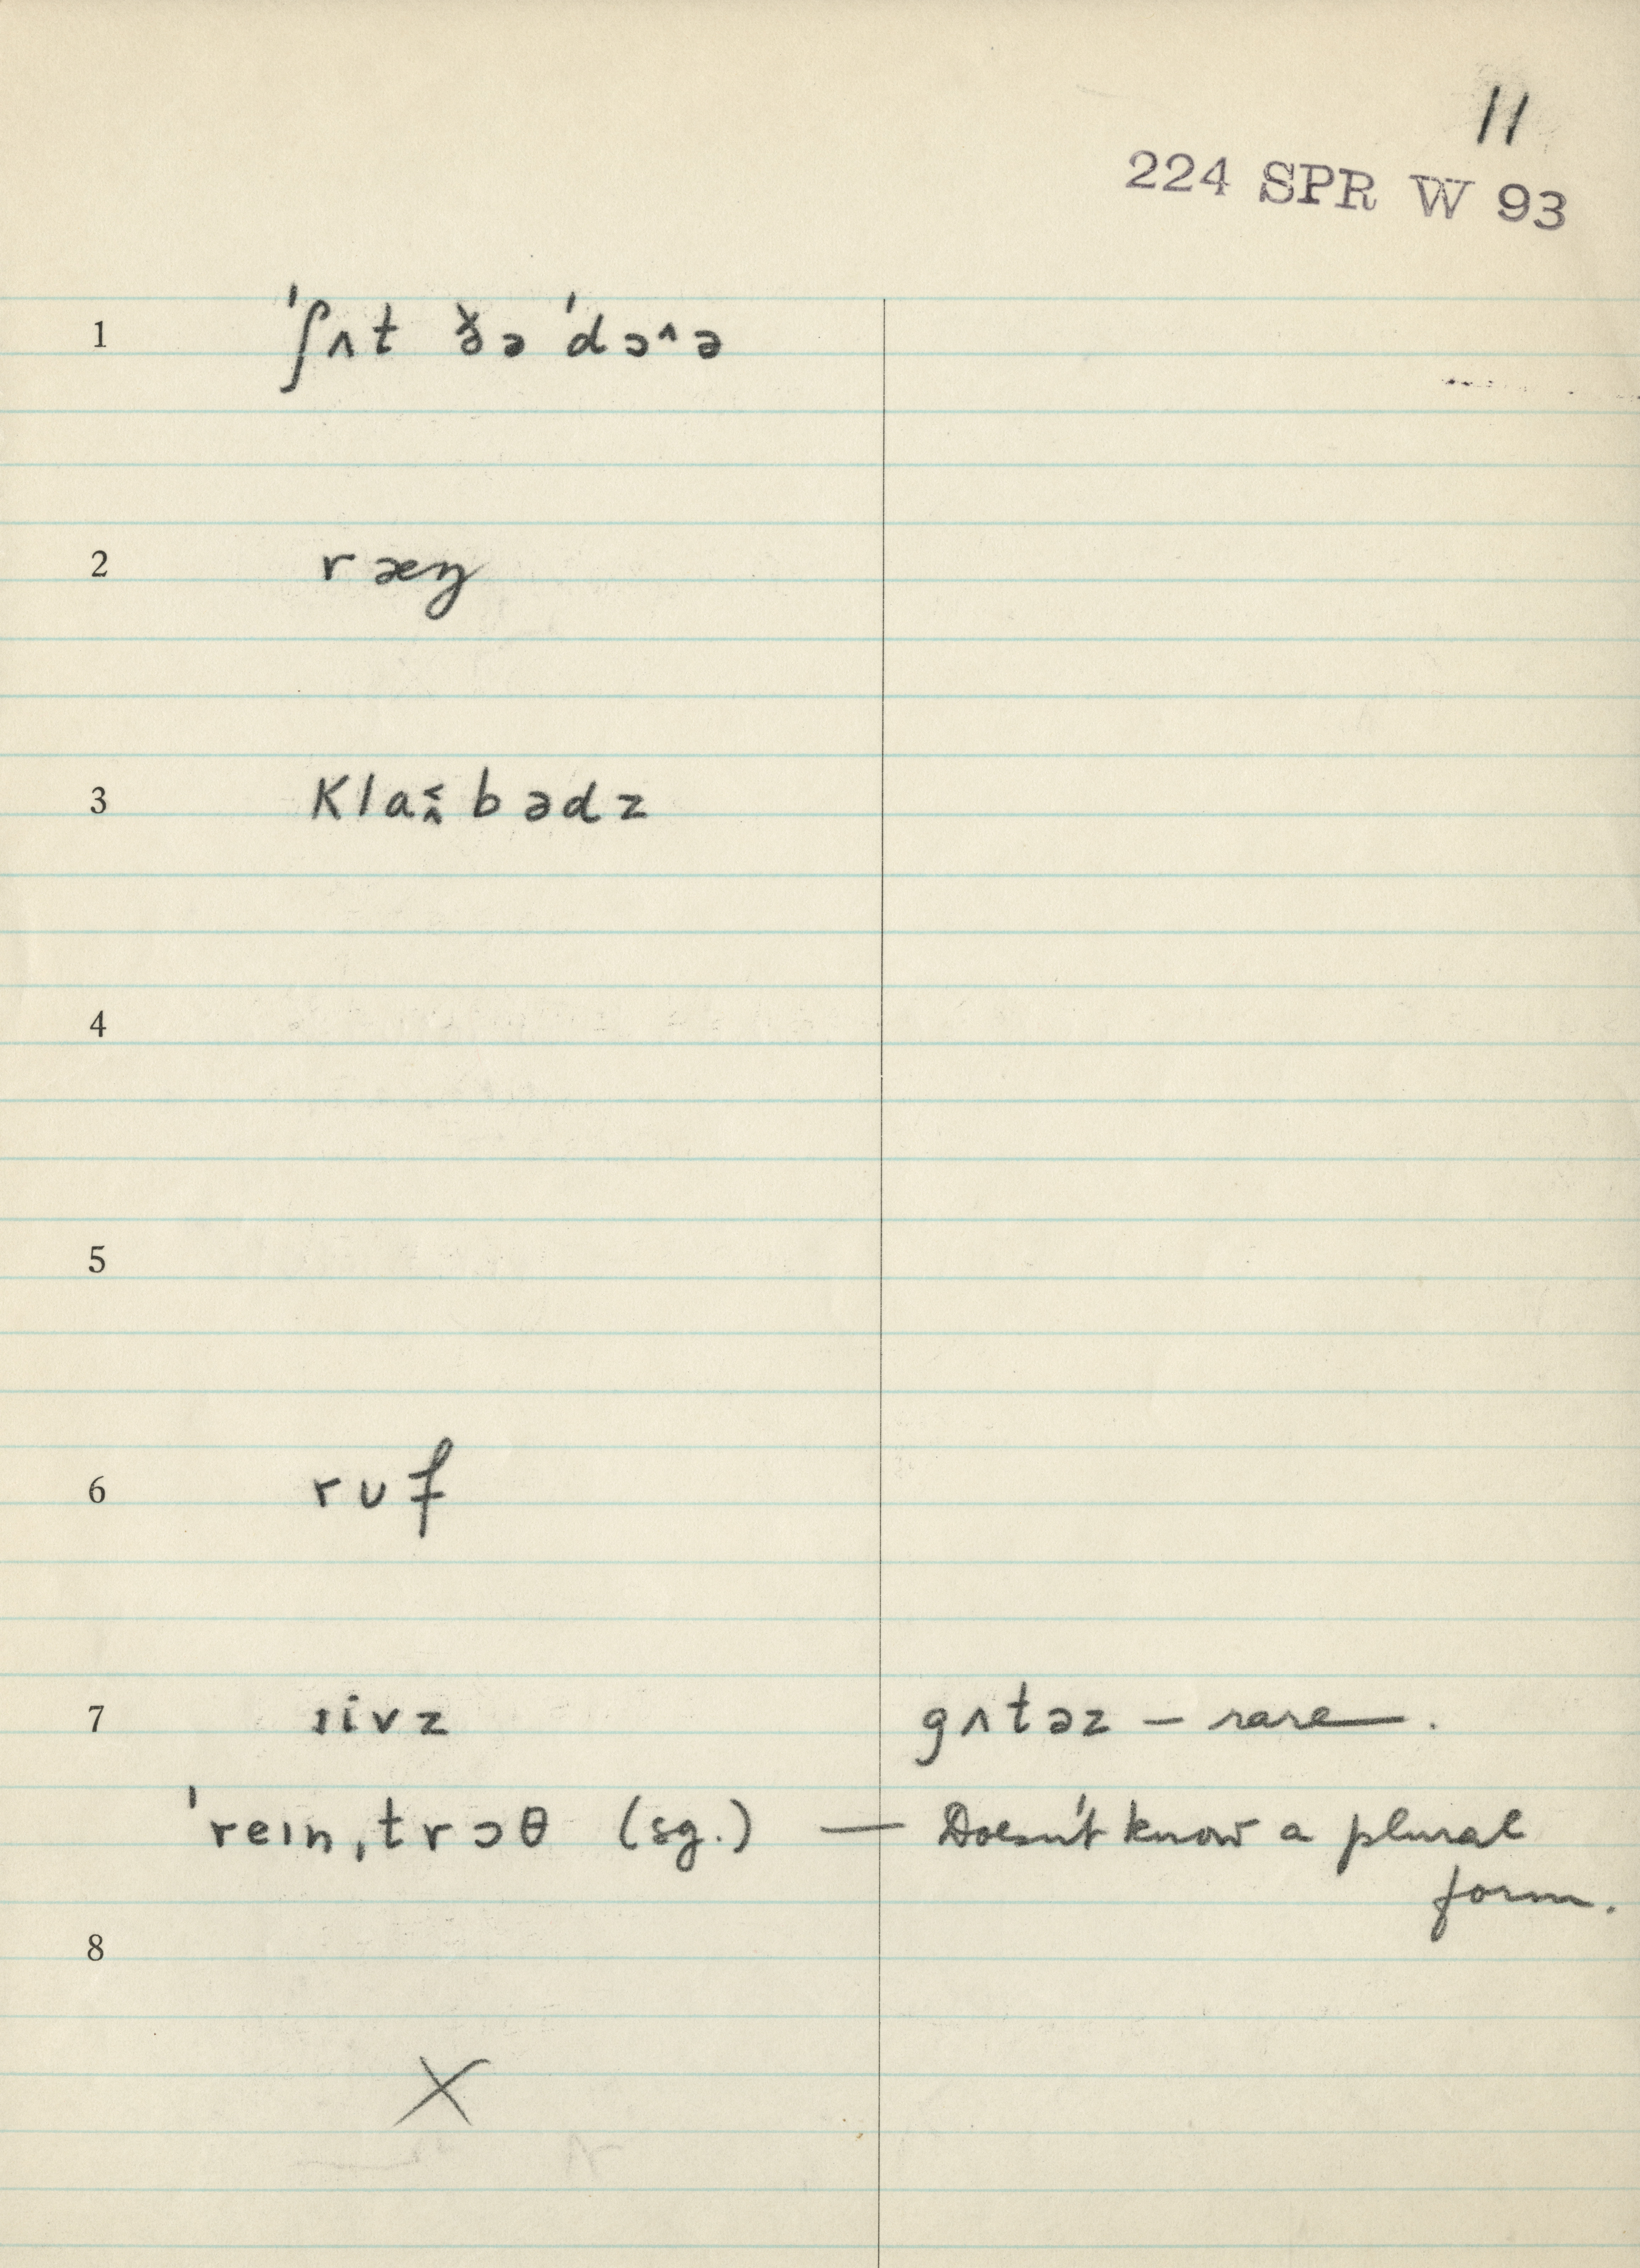 11
224 SPR W 93
1 ˈʃʌt ðə ˈdɔ^ə
2 ræŋ
3
4
5
6 rʊf
7 ɪivz gʌtəz – rare.
ˈreɪnˌtrɔθ (sg.) — Doesn't know a plural
form.
8
X